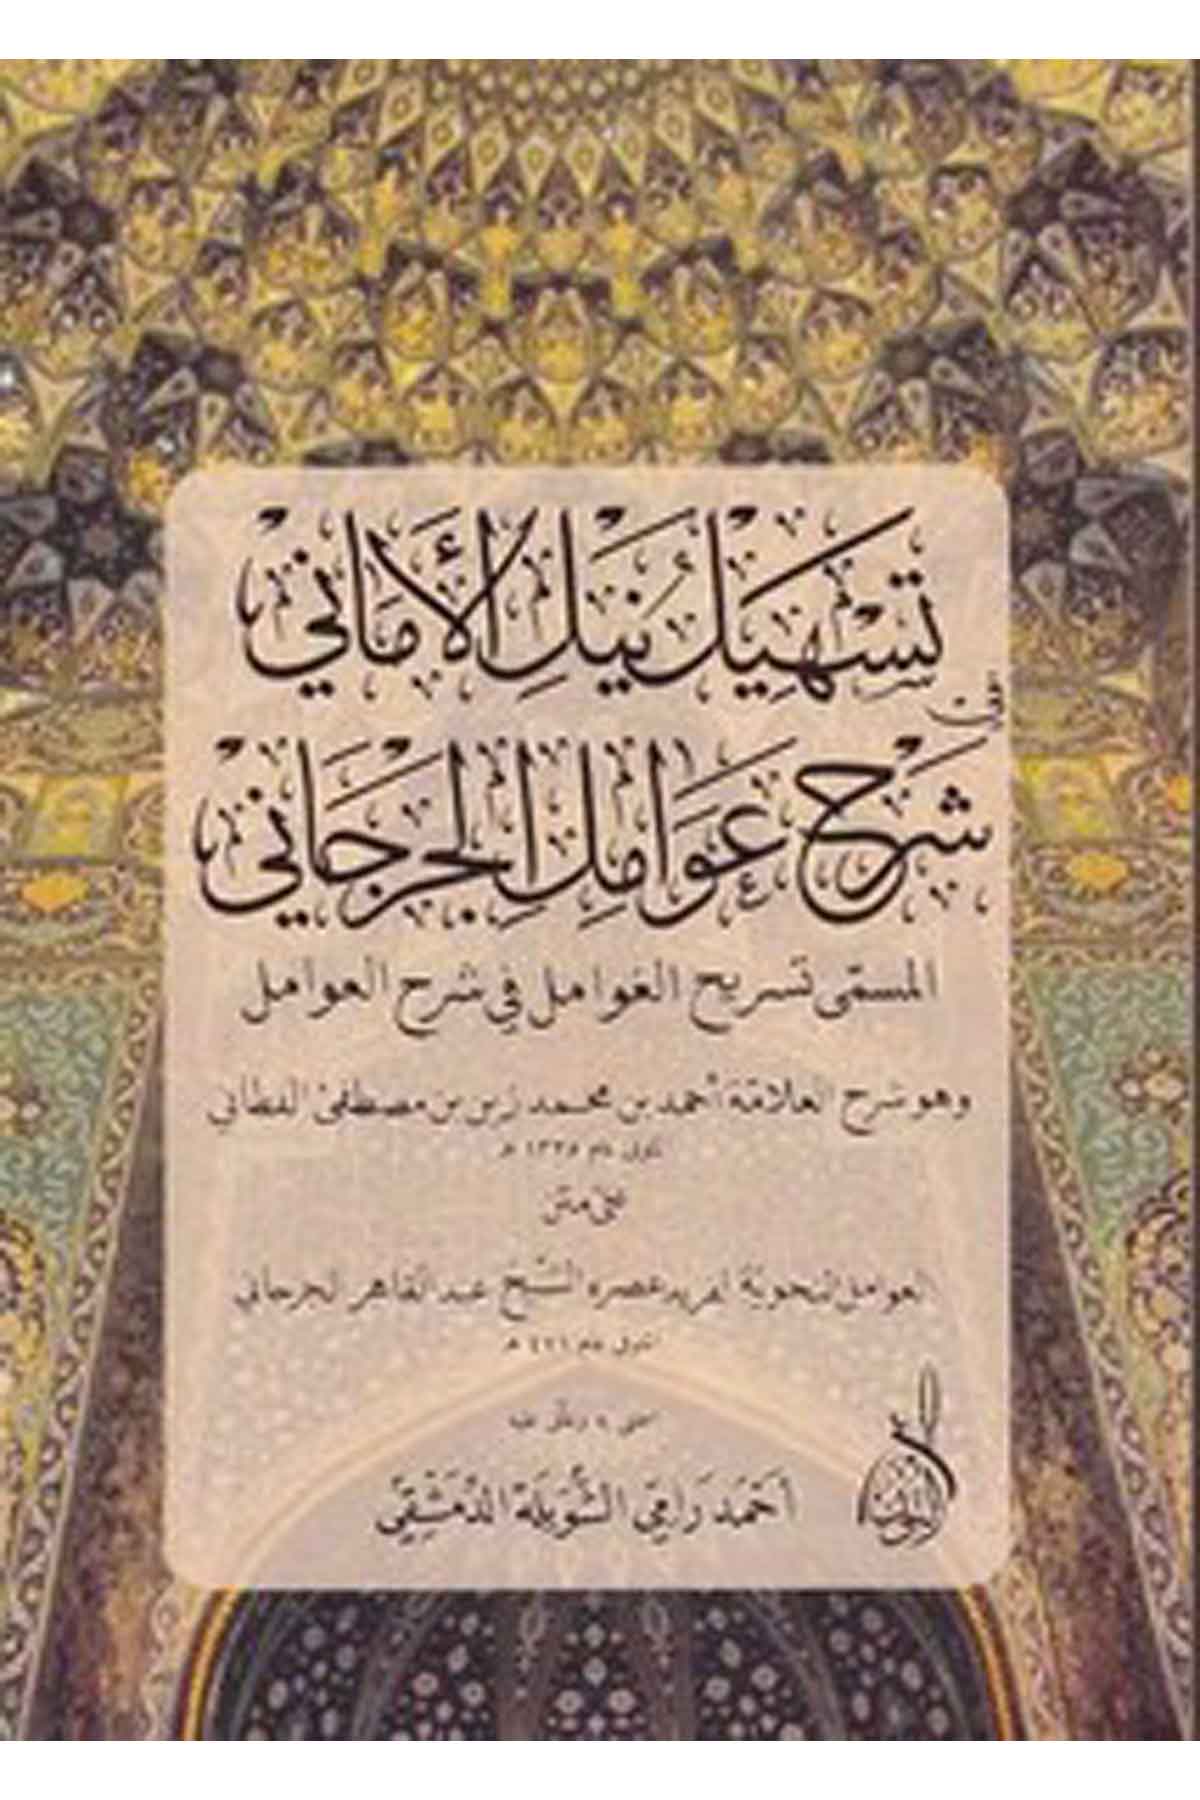 تسهيل نيل الأماني
في
شرح عوامل الجرجاني
المسمى تسريح الغوامل في شرح العوامل
وهو شرح العلامة أحمد بن محمد زين بن مصطفى الفطاني
المتوفى عام ١٣٢٥ هـ
على متن
العوامل النحوية لفريد عصره الشيخ عبد القاهر الجرجاني
المتوفى عام ٤٧١ هـ
اعتنى به وعلق عليه
أحمد رامي الشويلة الدمشقي